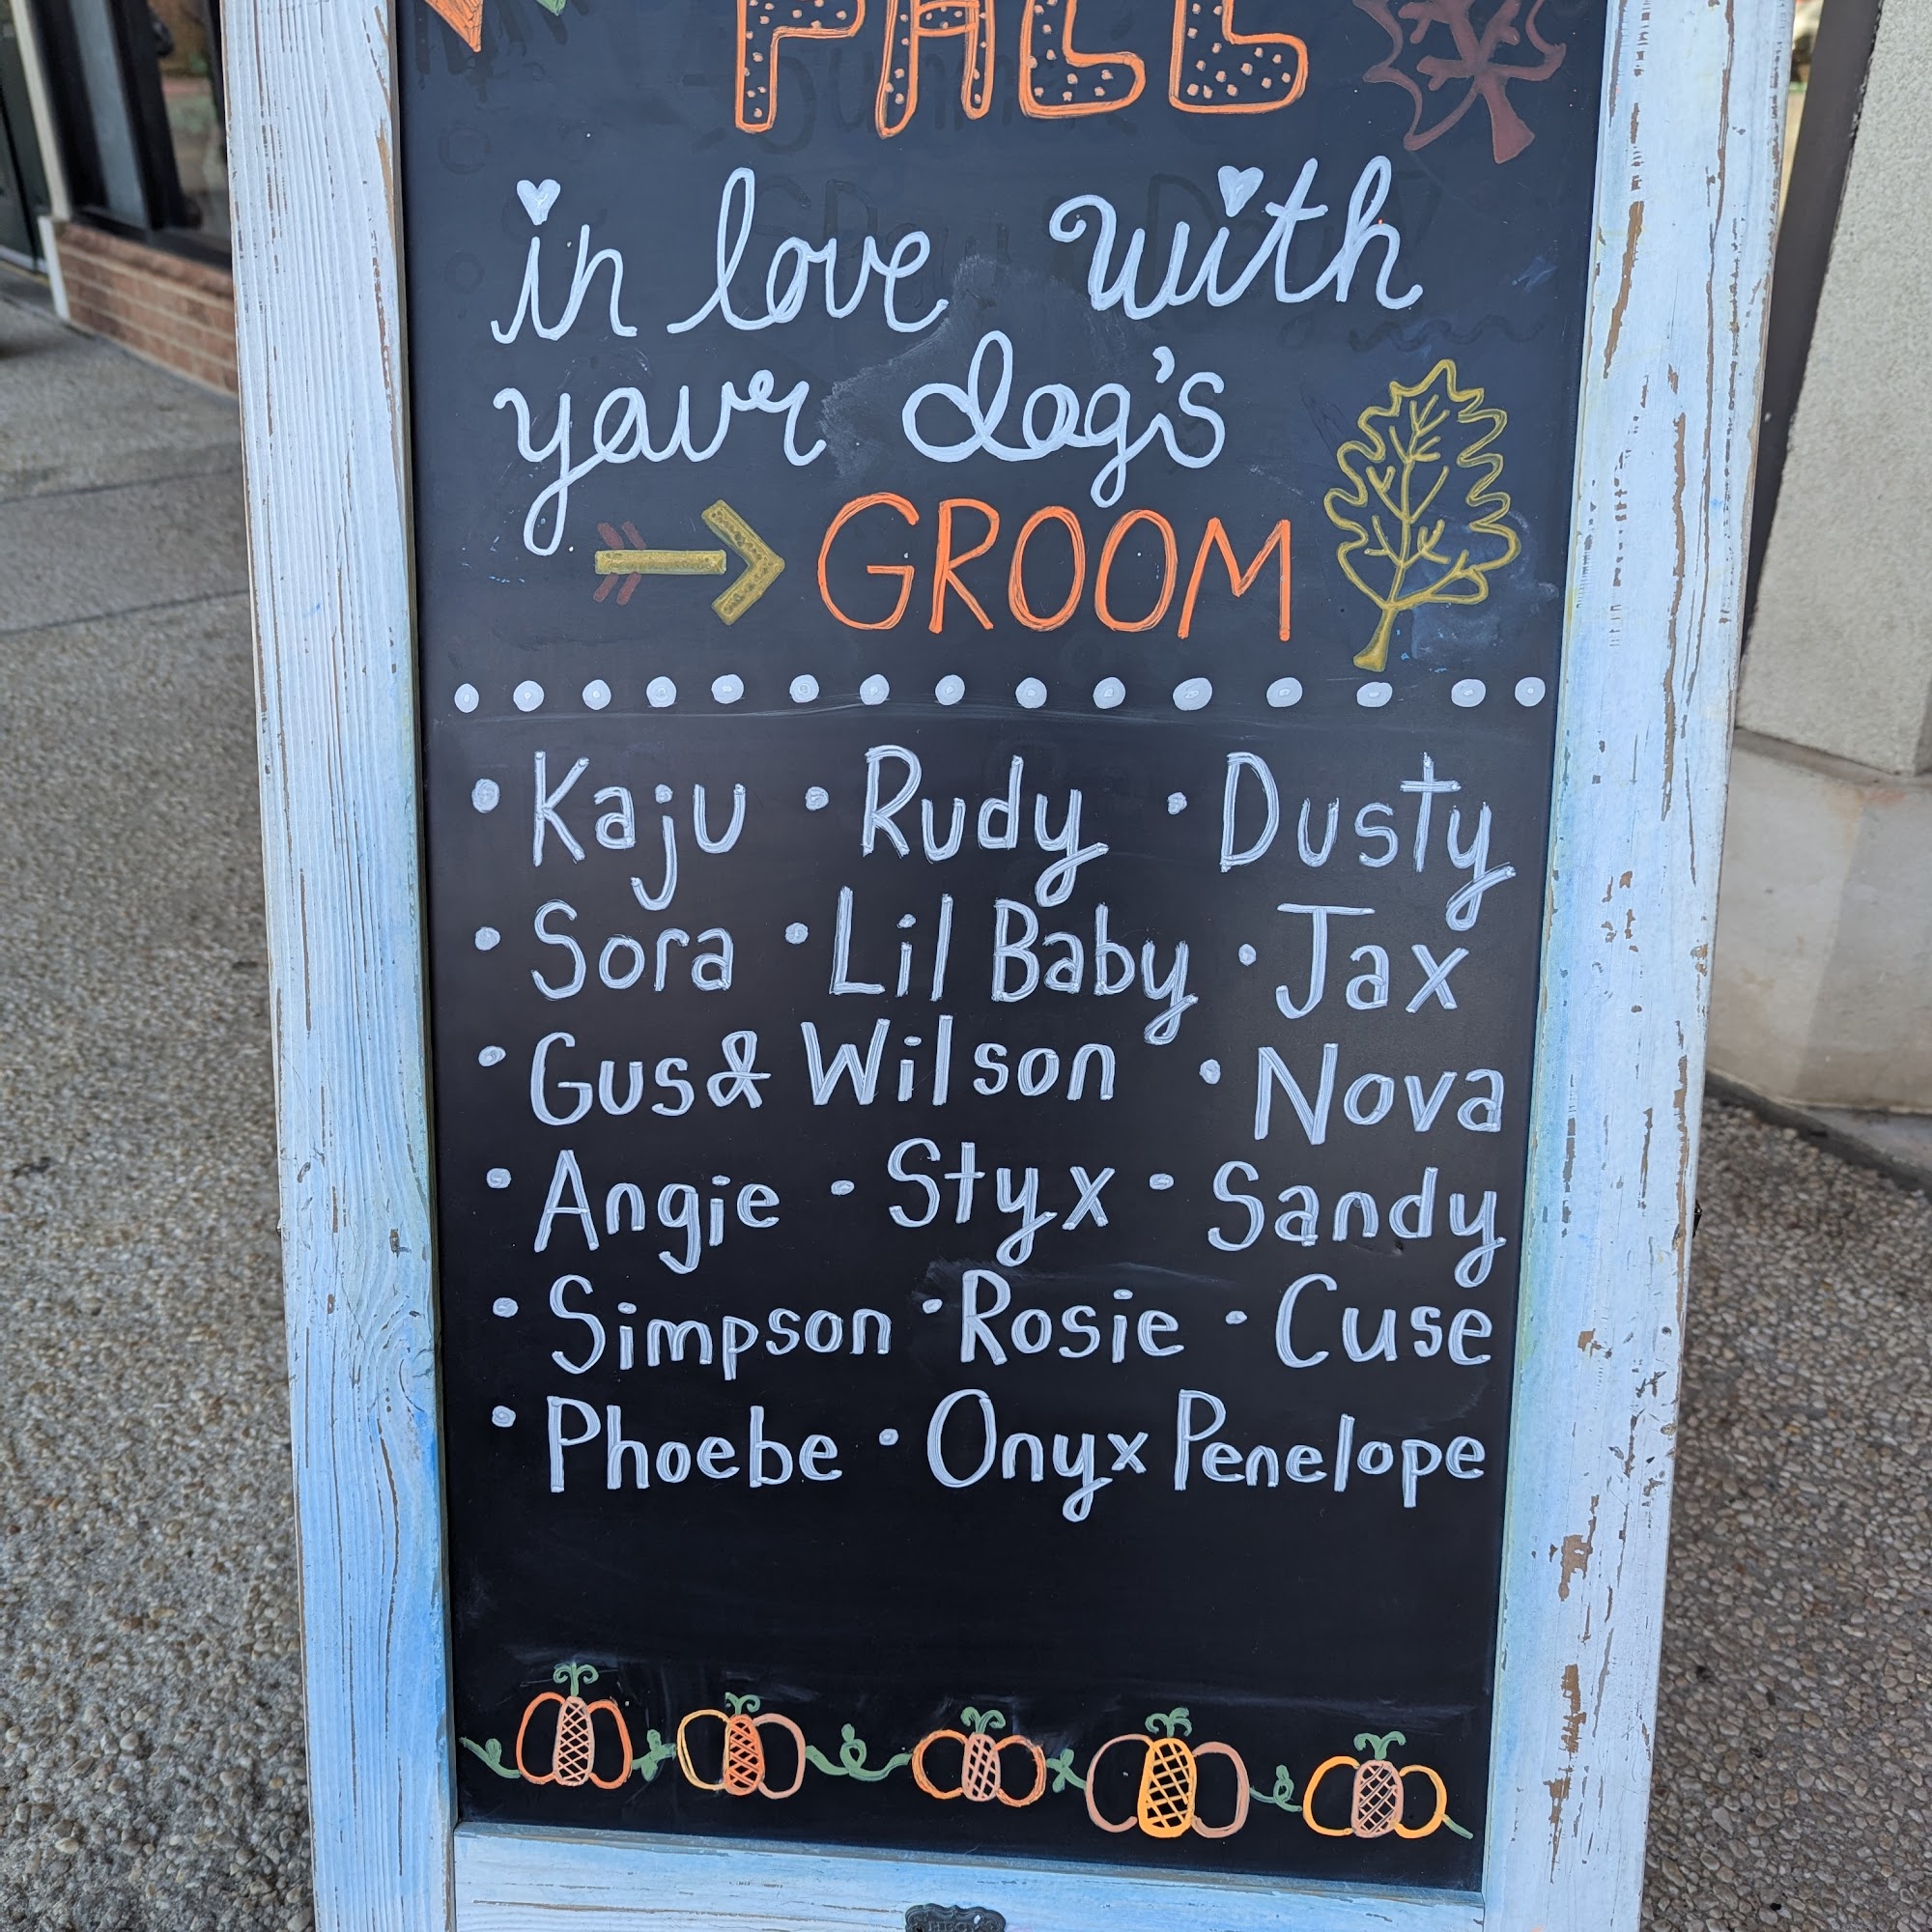 FALL
in love with
your dog's
GROOM
• Kaju • Rudy • Dusty
• Sora • Lil Baby • Jax
• Gus & Wilson • Nova
• Angie • Styx • Sandy
• Simpson • Rosie • Cuse
• Phoebe • Onyx Penelope